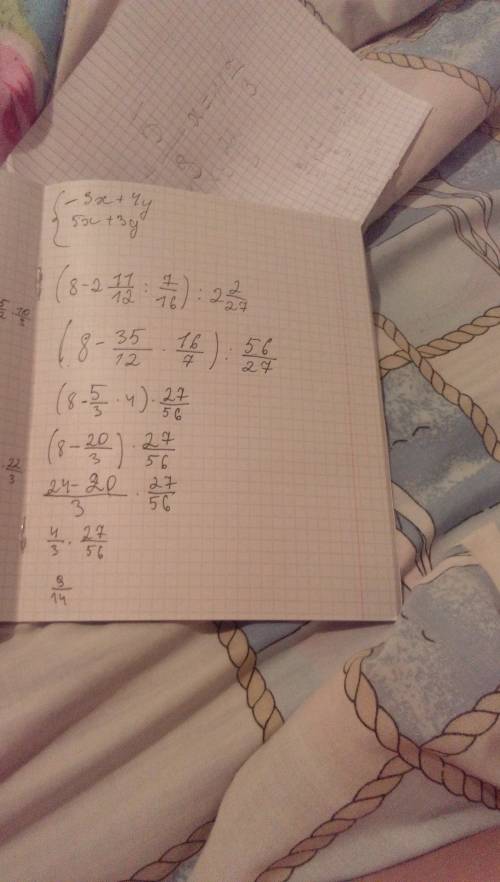 { -3x+4y
5x+3y
(8-2 11/12 : 7/16) : 2 2/27
(8- 35/12 · 16/7) : 56/27
(8- 5/3 · 4) · 27/56
(8- 20/3) · 27/56
24-20/3 · 27/56
4/3 · 27/56
9/14
· 22/3